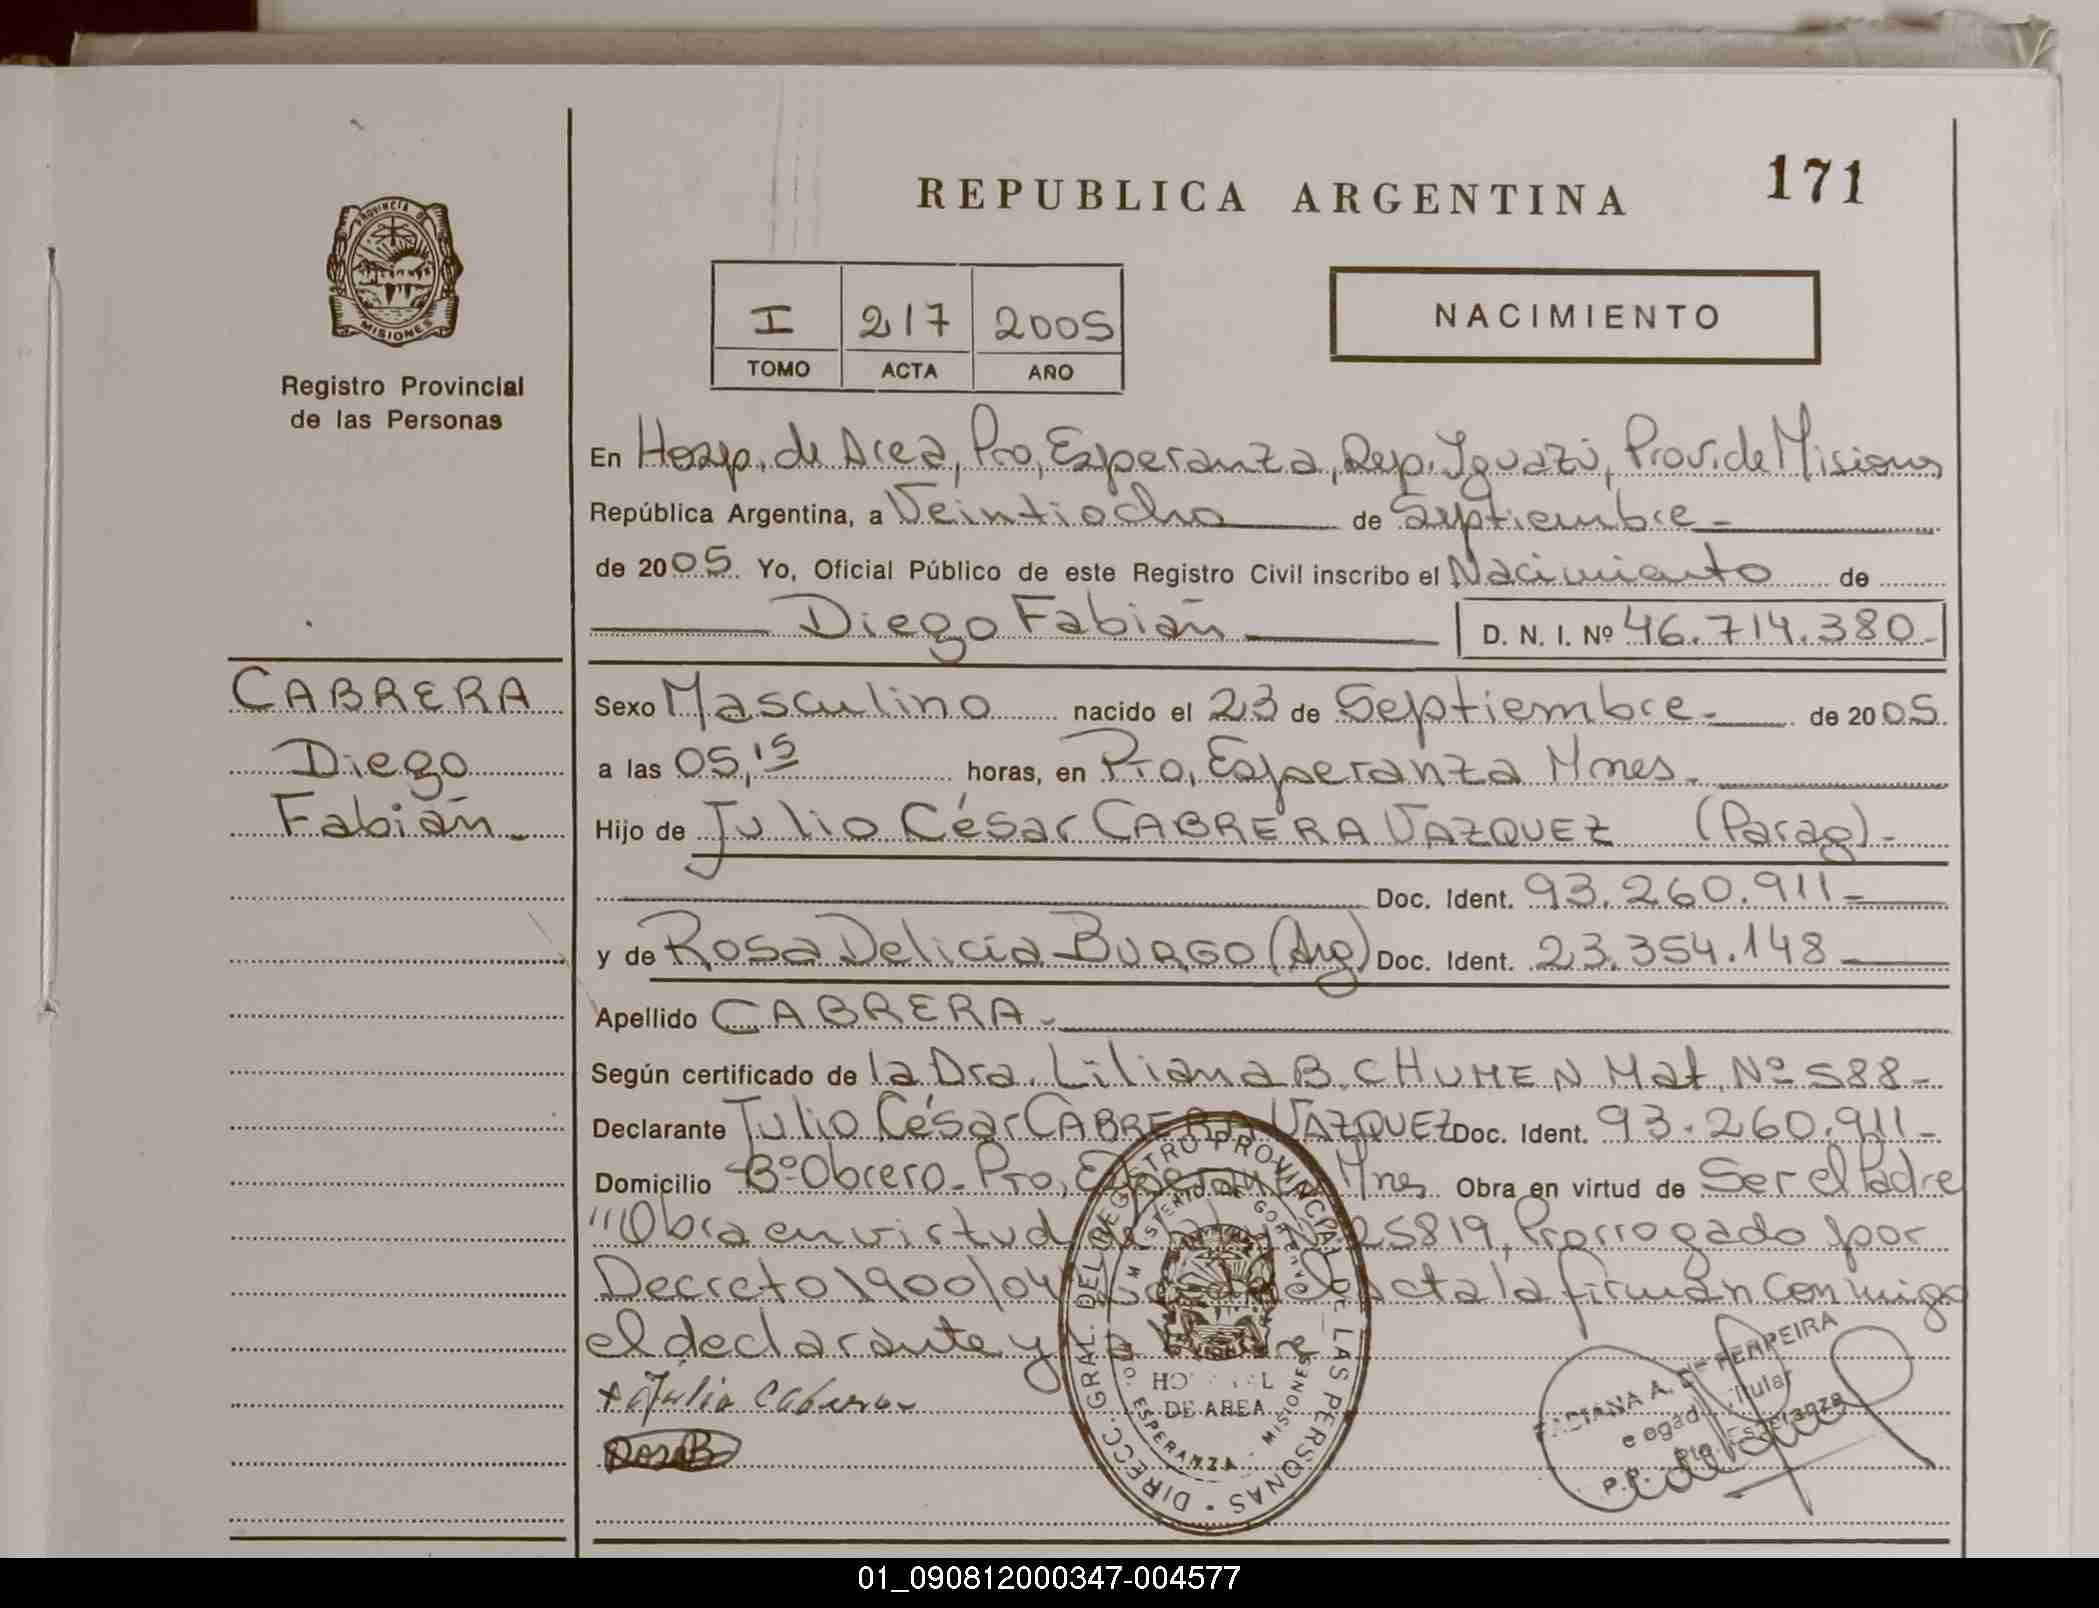 REPUBLICA ARGENTINA
171
PROVINCIA DE
MISIONES
Registro Provincial
de las Personas
I 217 2005
TOMO ACTA AÑO
NACIMIENTO
En Hosp. de Area, Pto, Esperanza, Dep. Iguazú, Prov. de Misiones
República Argentina, a Veintiocho de Septiembre -
de 2005 Yo, Oficial Público de este Registro Civil inscribo el Nacimiento de
Diego Fabián
D. N. I. Nº 46.714.380-
CABRERA
Diego
Fabián -
Sexo Masculino nacido el 23 de Septiembre - de 2005
a las 05,15 horas, en Pto, Esperanza Mnes.
Hijo de Julio César CABRERA VAZQUEZ (Parag) -
Doc. Ident. 93.260.911-
y de Rosa Delicia BURGO (Arg) Doc. Ident. 23.354.148
Apellido CABRERA -
Según certificado de la Dra. Liliana B. CHUMEN Mat. Nº 588-
Declarante Julio César CABRERA VAZQUEZ Doc. Ident. 93.260.911-
Domicilio Bº Obrero - Pto, Esperanza Mnes Obra en virtud de Ser el Padre
"Obra en virtud de la 25819, Prorrogado por
Decreto 1900/04 el Acta la firman conmigo
el declarante y la
+ Julio Cabrera
Rosa B
DIRECC. GRAL. DEL REGISTRO PROVINCIAL DE LAS PERSONAS
MINISTERIO DE GOBIERNO
DE AREA
ESPERANZA - MISIONES
A. DE FERREIRA
Titular
Pto. Esperanza
01_090812000347-004577